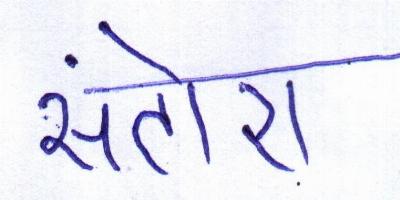 संतोरा